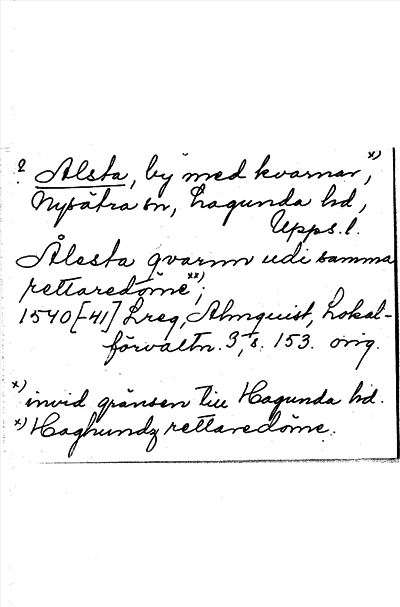 ? Alsta, by med kvarnar, x)
Nysätra sn, Lagunda hd,
Upps. l.
Ålesta qvarnn udi samma
rettaredöme xx);
1540[-41] Lreg, Almquist, Lokal-
förvaltn. 3, s. 153. orig.
x) invid gränsen till Hagunda hd.
x) Haghundz rettaredöme.